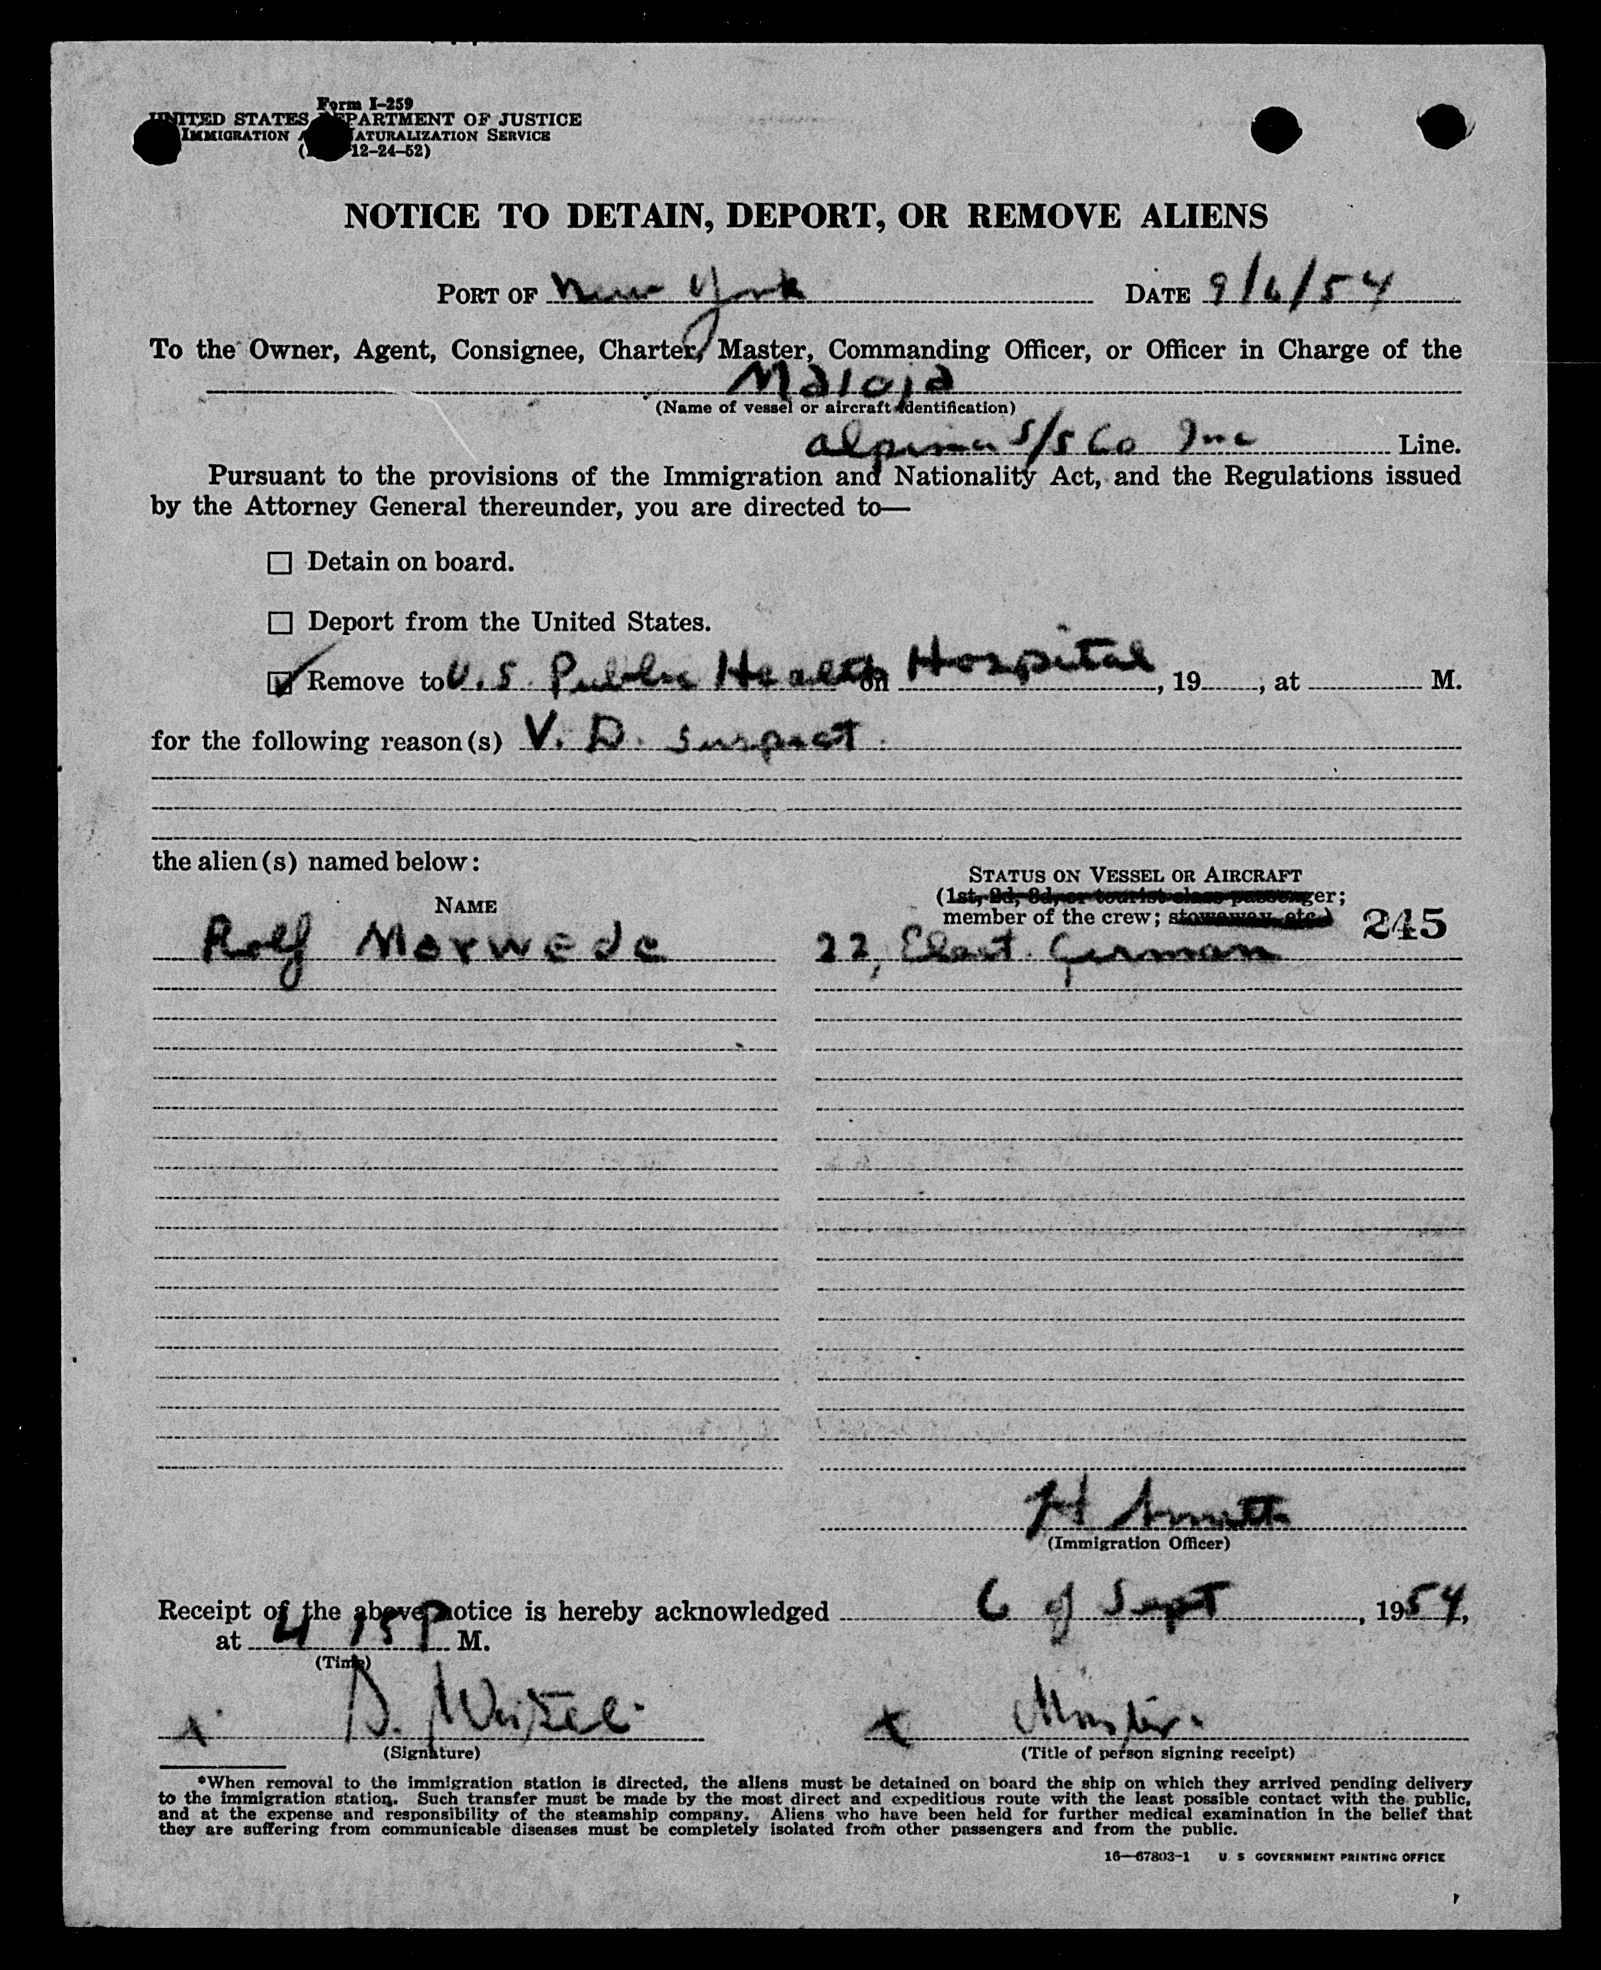 Form I-259
UNITED STATES DEPARTMENT OF JUSTICE
IMMIGRATION NATURALIZATION SERVICE
12-24-52)
NOTICE TO DETAIN, DEPORT, OR REMOVE ALIENS
PORT OF New York DATE 9/6/54
To the Owner, Agent, Consignee, Charter, Master, Commanding Officer, or Officer in Charge of the
Maloja
(Name of vessel or aircraft identification)
alpina S/S Co Inc Line.
Pursuant to the provisions of the Immigration and Nationality Act, and the Regulations issued
by the Attorney General thereunder, you are directed to—
☐ Detain on board.
☐ Deport from the United States.
☑ Remove to U.S. Public Health on Hospital, 19 , at M.
for the following reason(s) V. D. suspect.
the alien(s) named below:
STATUS ON VESSEL OR AIRCRAFT
(1st, 2d, 3d, or tourist class passenger;
NAME
member of the crew; stowaway, etc.) 245
Rolf Morwede 22, Elect. German
H Smith
(Immigration Officer)
Receipt of the above notice is hereby acknowledged 6 of Sept, 1954,
at 4 15 P M.
(Time)
x D. x Master.
(Signature) (Title of person signing receipt)
*When removal to the immigration station is directed, the aliens must be detained on board the ship on which they arrived pending delivery
to the immigration station. Such transfer must be made by the most direct and expeditious route with the least possible contact with the public,
and at the expense and responsibility of the steamship company. Aliens who have been held for further medical examination in the belief that
they are suffering from communicable diseases must be completely isolated from other passengers and from the public.
16—67803-1 U. S GOVERNMENT PRINTING OFFICE